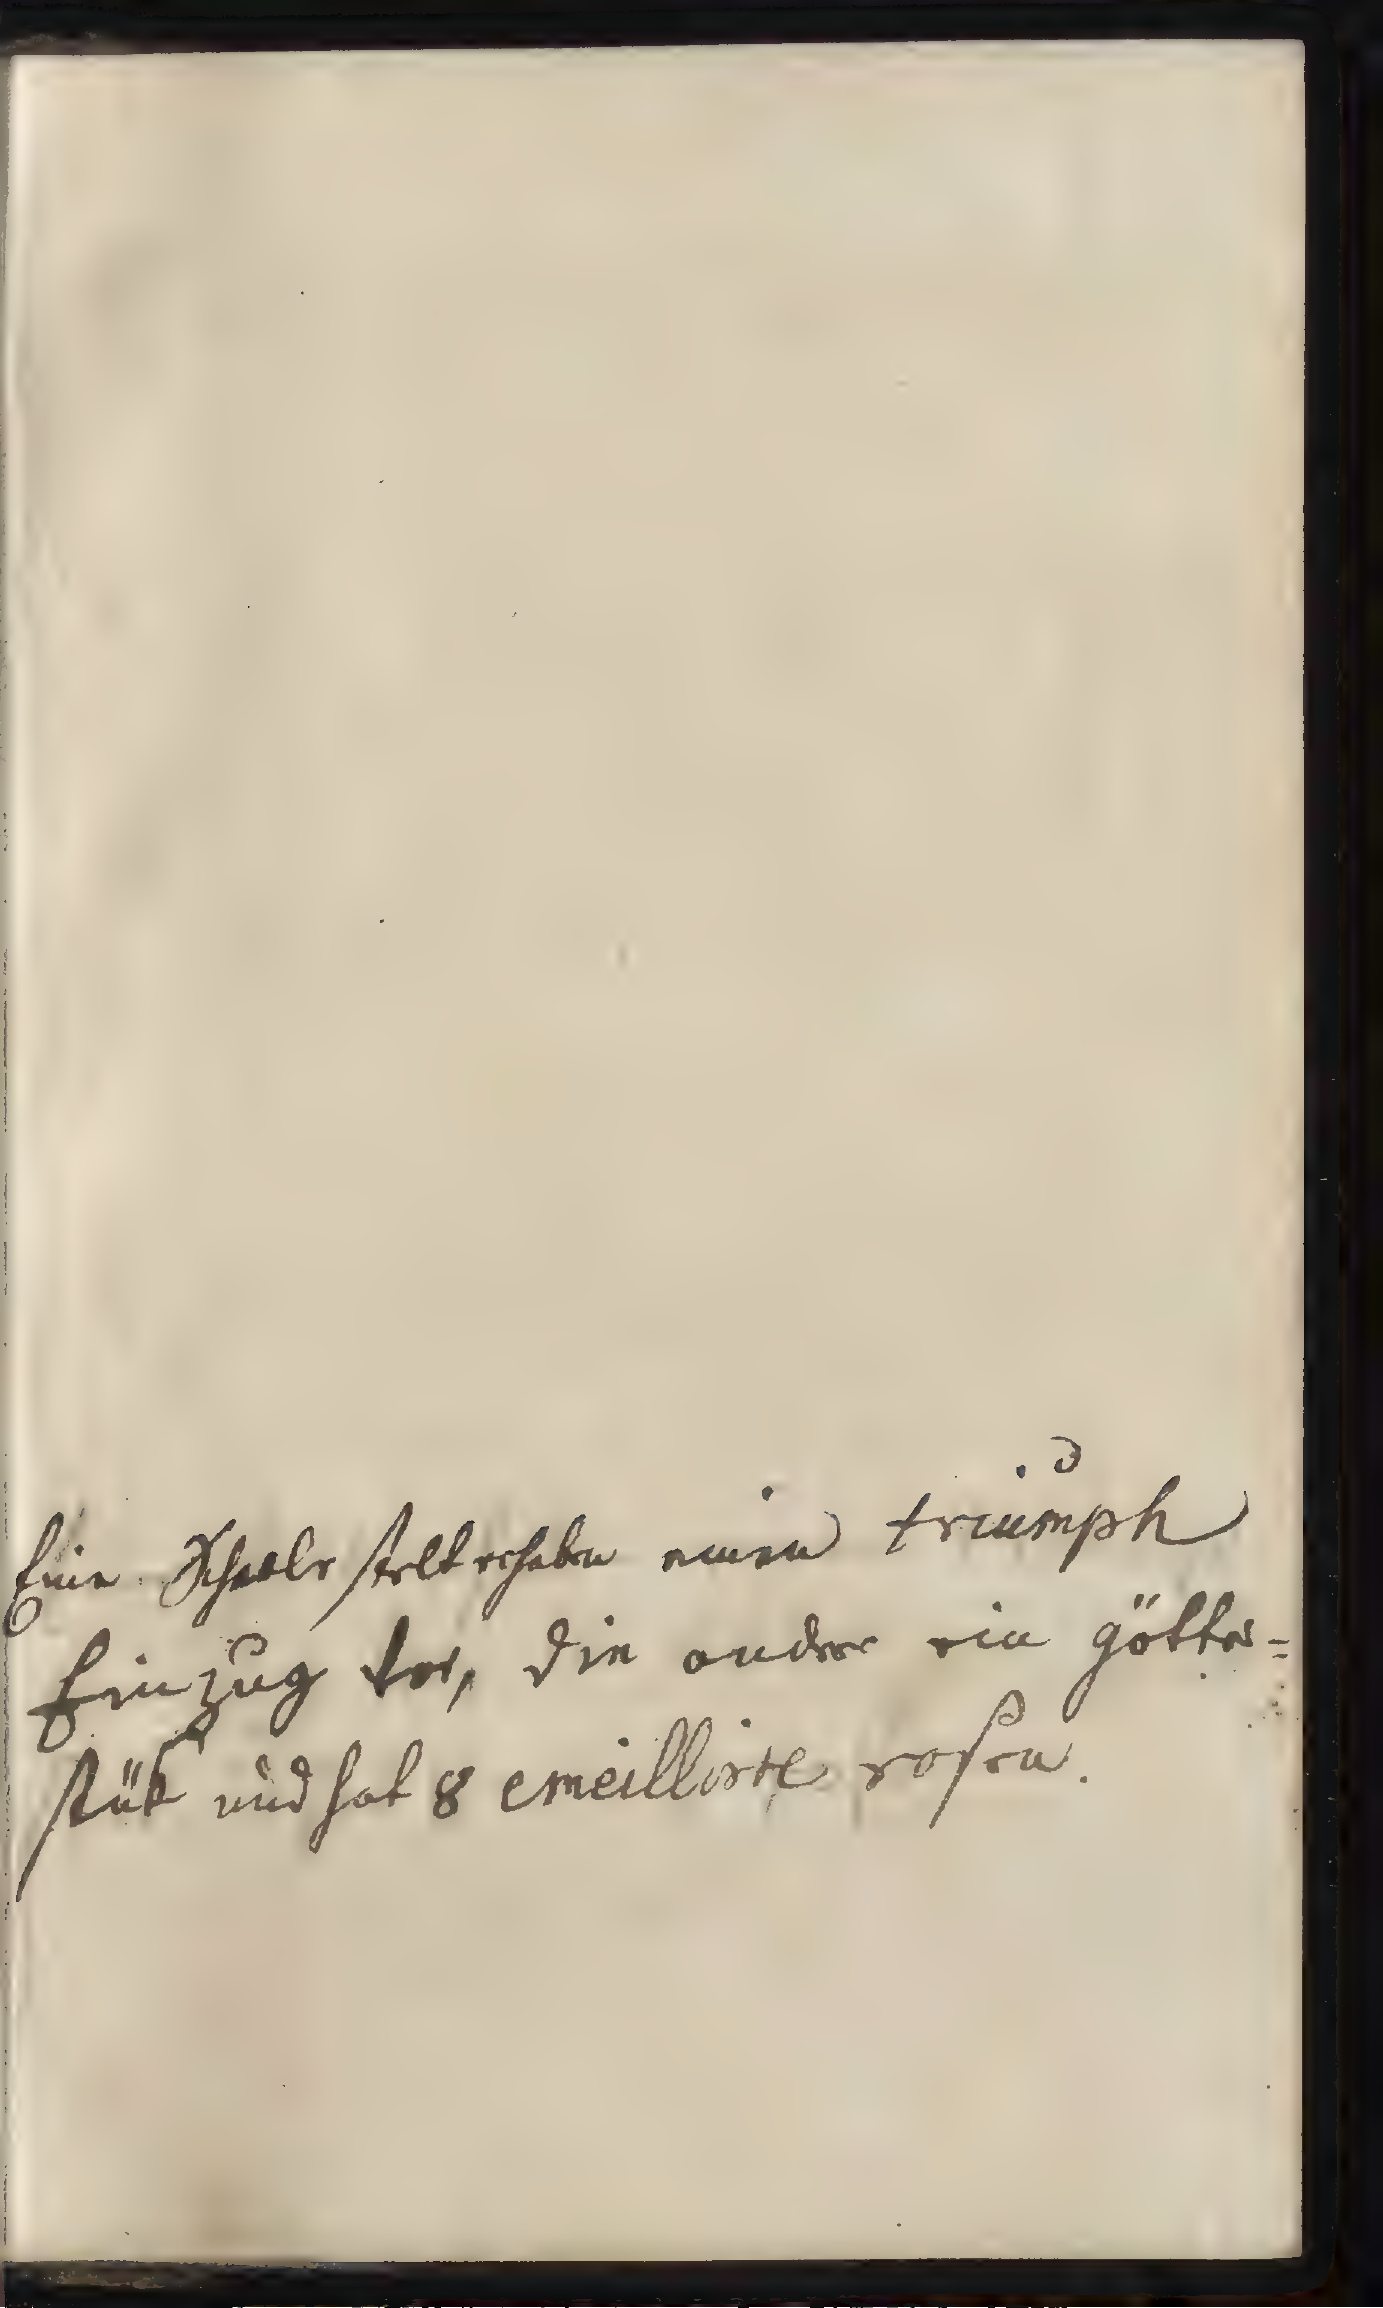 Eine Schaale stelt erhaben einen triumph
Einzug vor, die andere ein götter=
stük und hat 8 emeillirte rosen.